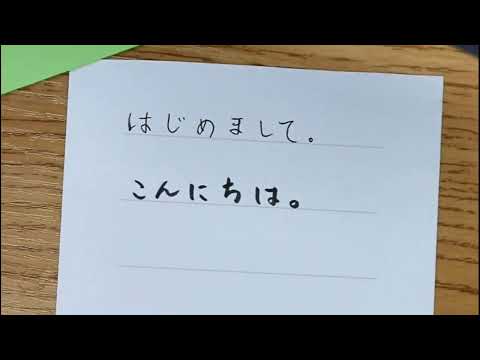 はじめまして。
こんにちは。